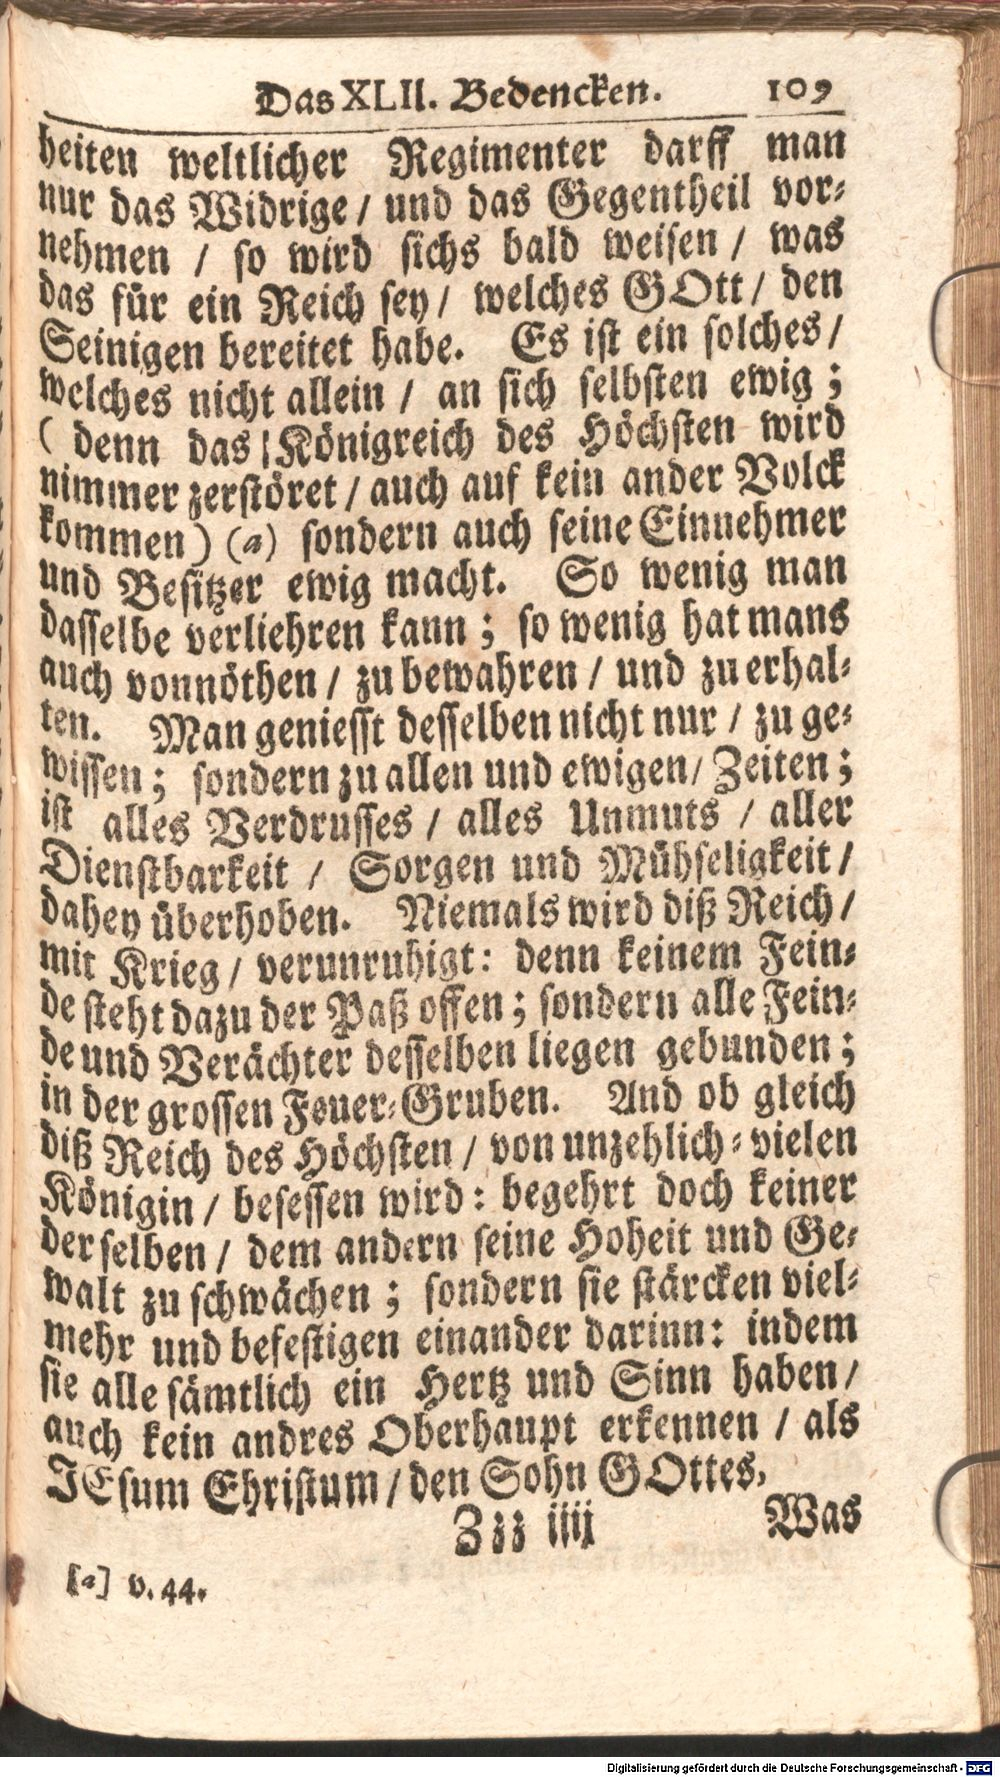 Das XLII. Bedencken. 109
heiten weltlicher Regimenter darff man
nur das Widrige / und das Gegentheil vor⸗
nehmen / so wird sichs bald weisen / was
das für ein Reich sey / welches GOtt / den
Seinigen bereitet habe. Es ist ein solches /
welches nicht allein / an sich selbsten ewig ;
( denn das Königreich des Höchsten wird
nimmer zerstöret / auch auf kein ander Volck
kommen ) (a) sondern auch seine Einnehmer
und Besitzer ewig macht. So wenig man
dasselbe verliehren kann ; so wenig hat mans
auch vonnöthen / zu bewahren / und zu erhal⸗
ten. Man geniesst desselben nicht nur / zu ge⸗
wissen ; sondern zu allen und ewigen / Zeiten ;
ist alles Verdrusses / alles Unmuts / aller
Dienstbarkeit / Sorgen und Mühseligkeit /
dahey überhoben. Niemals wird diß Reich /
mit Krieg / verunruhigt: denn keinem Fein⸗
de steht dazu der Paß offen ; sondern alle Fein⸗
de und Verächter desselben liegen gebunden ;
in der grossen Feuer⸗Gruben. Und ob gleich
diß Reich des Höchsten / von unzehlich⸗vielen
Königin / besessen wird : begehrt doch keiner
derselben / dem andern seine Hoheit und Ge⸗
walt zu schwächen ; sondern sie stärcken viel⸗
mehr und befestigen einander darinn: indem
sie alle sämtlich ein Hertz und Sinn haben /
auch kein andres Oberhaupt erkennen / als
JEsum Christum / den Sohn GOttes.
Zzz iiij Was
[a] v. 44.
Digitalisierung gefördert durch die Deutsche Forschungsgemeinschaft - DFG